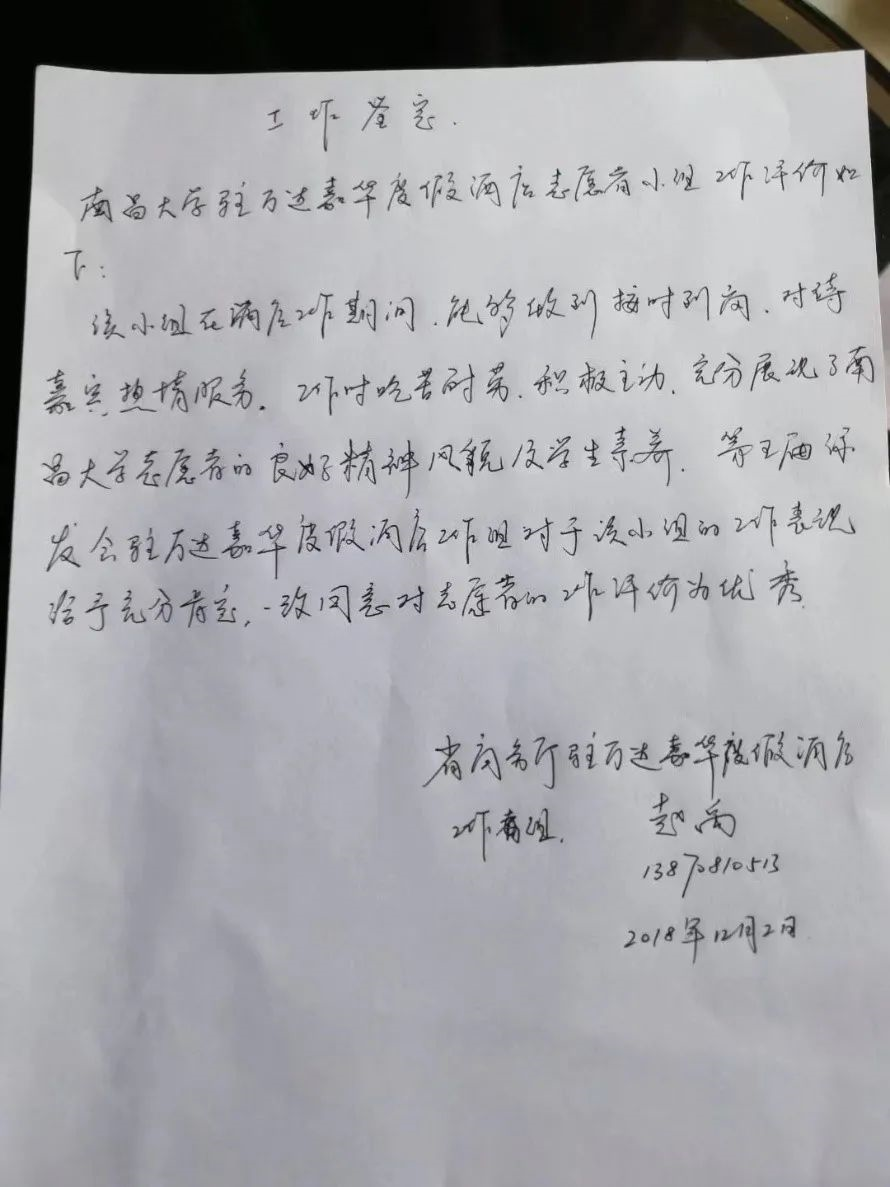 工作鉴定.
南昌大学驻万达嘉华度假酒店志愿者小组工作评价如
下:
该小组在酒店工作期间,能够做到按时到岗,对待
嘉宾热情服务。工作时吃苦耐劳,积极主动,充分展现了南
昌大学志愿者的良好精神风貌及学生素养。第五届绿
发会驻万达嘉华度假酒店工作组对于该小组的工作表现
给予充分肯定,一致同意对志愿者的工作评价为优秀.
省商务厅驻万达嘉华度假酒店
工作组. 赵禹
13870810513
2018年12月2日